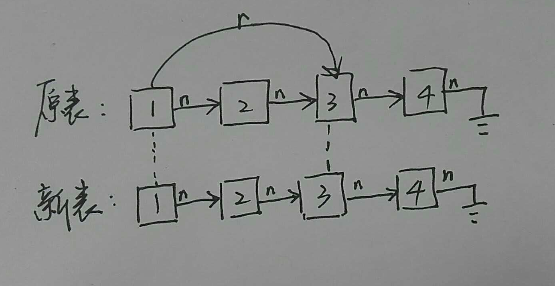 r
原表: 1 n 2 n 3 n 4 n
新表: 1 n 2 n 3 n 4 n